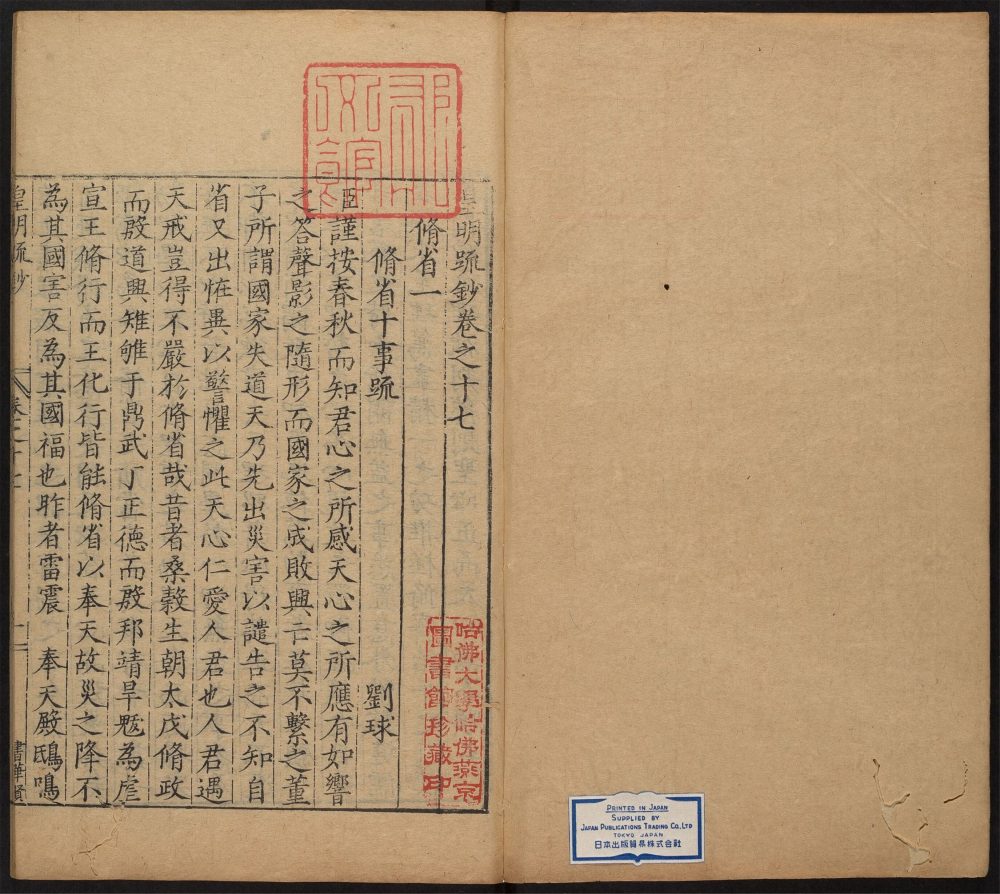 皇明疏鈔卷之十七
脩省一
脩省十事疏 劉球
臣謹按春秋而知君心之所感天心之所應有如響
之答聲影之隨形而國家之成敗興亡莫不繫之董
子所謂國家失道天乃先出災害以譴告之不知自
省又出恠異以警懼之此天心仁愛人君也人君遇
天戒豈得不嚴於脩省哉昔者桑穀生朝太戊脩政
而殷道興雉雊于鼎武丁正德而殷邦靖旱魃為虐
宣王脩行而王化行皆能脩省以奉天故災之降不
為其國害反為其國福也昨者雷震 奉天殿鴟鳴
皇明疏鈔
卷之十七
一
書華賢
哈佛大學哈佛燕京
圖書館珍藏印
PRINTED IN JAPAN
SUPPLIED BY
JAPAN PUBLICATIONS TRADING CO., LTD
TOKYO JAPAN
日本出版貿易株式会社